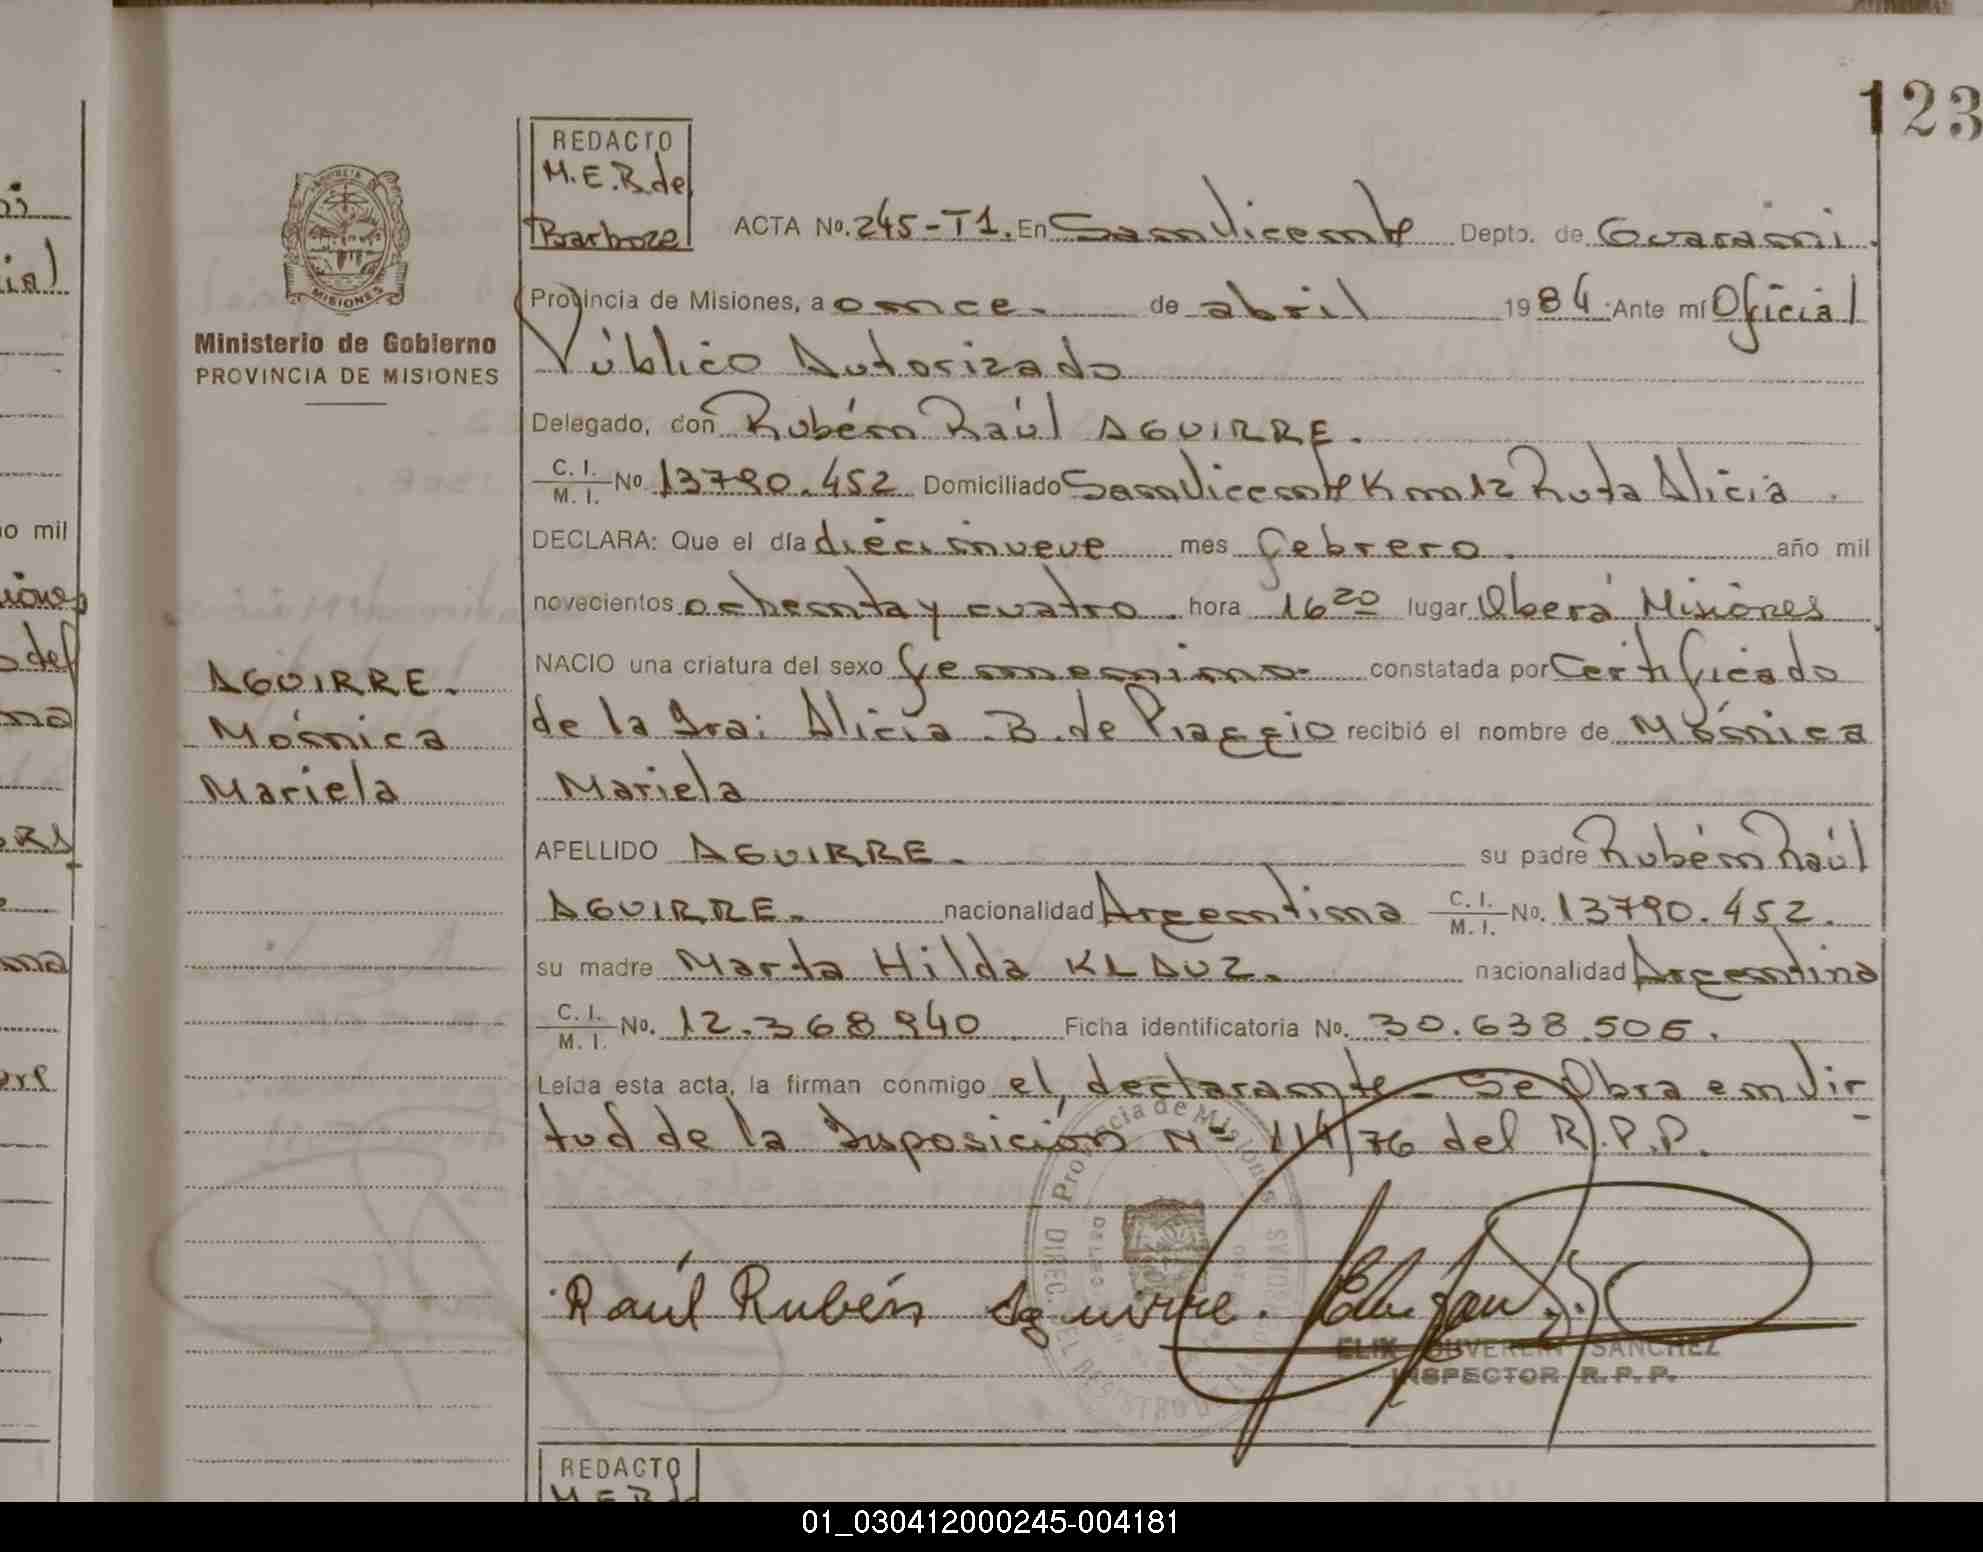 123
REDACTO
M.E.B. de
Barboze
Ministerio de Gobierno
PROVINCIA DE MISIONES
MISIONES
ACTA No. 245-T1. En San Vicente Depto. de Guaraní.
Provincia de Misiones, a once. de abril 1984 Ante mí Oficial
Público Autorizado
Delegado, don Rubén Raúl AGUIRRE.
C. I. / M. I. No. 13790.452 Domiciliado San Vicente Km 12 Ruta Alicia.
DECLARA: Que el día diécinueve mes febrero. año mil
novecientos ochenta y cuatro. hora 16 20 lugar Oberá Misiones
NACIO una criatura del sexo femenino constatada por Certificado
de la Sra: Alicia B. de Piaggio recibió el nombre de Mónica
Mariela
AGUIRRE.
Mónica
Mariela
APELLIDO AGUIRRE. su padre Rubén Raúl
AGUIRRE. nacionalidad Argentina C. I. / M. I. No. 13790.452.
su madre Marta Hilda KLAUZ. nacionalidad Argentina
C. I. / M. I. No. 12.368.940 Ficha identificatoria No. 30.638.505.
Leída esta acta, la firman conmigo el declarante. Se Obra en vir
tud de la Disposición Nº 114/76 del R.P.P.
Provincia de Misiones
Raúl Rubén Aguirre.
SANCHEZ
INSPECTOR R.P.P.
REDACTO
M.E.B. de
01_030412000245-004181